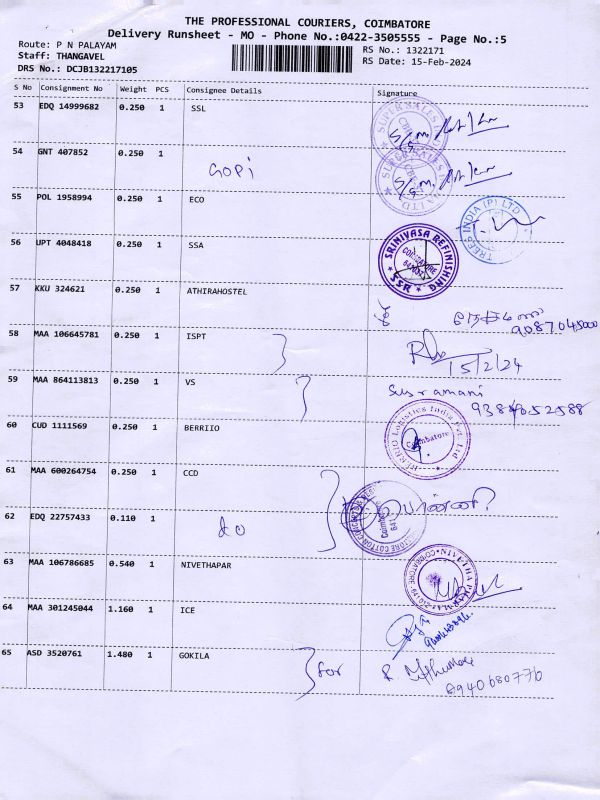 THE PROFESSIONAL COURIERS, COIMBATORE
Delivery Runsheet - MO - Phone No.:0422-3505555 - Page No.:5
Route: P N PALAYAM
Staff: THANGAVEL
DRS No.: DCJB132217105
RS No.: 1322171
RS Date: 15-Feb-2024
S No Consignment No Weight PCS Consignee Details Signature
53 EDQ 14999682 0.250 1 SSL
54 GNT 407852 0.250 1 GOPi
55 POL 1958994 0.250 1 ECO
TREES INDIA (P) LTD
56 UPT 4048418 0.250 1 SSA
SRINIVASA REFINISHING
COIMBATORE
SSR
57 KKU 324621 0.250 1 ATHIRAHOSTEL
for
9087045000
58 MAA 106645781 0.250 1 ISPT
15/2/24
59 MAA 864113813 0.250 1 VS
60 CUD 1111569 0.250 1 BERRIIO
BERRIIO Logistics India Pvt. Ltd
Coimbatore
61 MAA 600264754 0.250 1 CCD
62 EDQ 22757433 0.110 1 do
Coimbatore
641
63 MAA 106786685 0.540 1 NIVETHAPAR
64 MAA 301245044 1.160 1 ICE
65 ASD 3520761 1.480 1 GOKILA for
8940680776